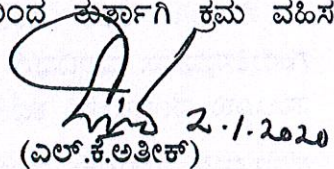 ತುರ್ತಾಗಿ ಕ್ರಮ ವಹಿಸ
2.1.2020
(ಎಲ್.ಕೆ.ಅತೀಕ್)